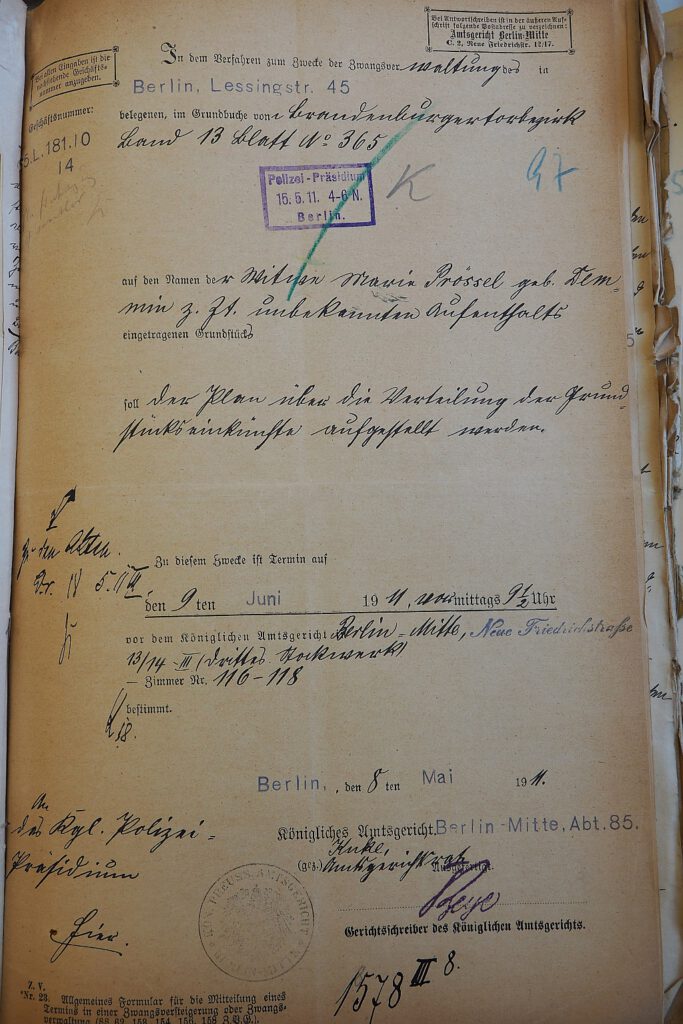 Bei Antwortschreiben ist in der äußeren Auf-
schrift folgende Postadresse zu verzeichnen:
Amtsgericht Berlin-Mitte
C. 2, Neue Friedrichstr. 12/17.
Bei allen Eingaben ist die
nachstehende Geschäfts-
nummer anzugeben.
Geschäftsnummer:
5.L.181.10
14
In dem Verfahren zum Zwecke der Zwangsverwaltung des in
Berlin, Lessingstr. 45
belegenen, im Grundbuche von Brandenburgertorbezirk
Band 13 Blatt No 365
Polizei-Präsidium
15.5.11. 4-6 N.
Berlin.
K
97
auf den Namen der Witwe Marie Prössel geb. Dem-
min z. Zt. unbekannten Aufenthalts
eingetragenen Grundstücks
soll der Plan über die Verteilung der Grund-
stückseinkünfte aufgestellt werden.
Zu den Akten.
Zu diesem Zwecke ist Termin auf
den 9 ten Juni 1911, vormittags 9 1/2 Uhr
vor dem Königlichen Amtsgericht Berlin-Mitte, Neue Friedrichstrasse
13/14 - III (drittes Stockwerk)
— Zimmer Nr. 116-118
bestimmt.
Berlin, den 8 ten Mai 1911.
An
das Kgl. Polizei-
Präsidium
hier.
Königliches Amtsgericht Berlin-Mitte, Abt. 85.
(gez.) Amtsgerichtsrat
Ausgefertigt.
Gerichtsschreiber des Königlichen Amtsgerichts.
1578 III 8.
Z. V.
*Nr. 23. Allgemeines Formular für die Mitteilung eines
Termins in einer Zwangsversteigerung oder Zwangs-
verwaltung (§§ 62, 153, 154, 156, 158 Z.V.G.).